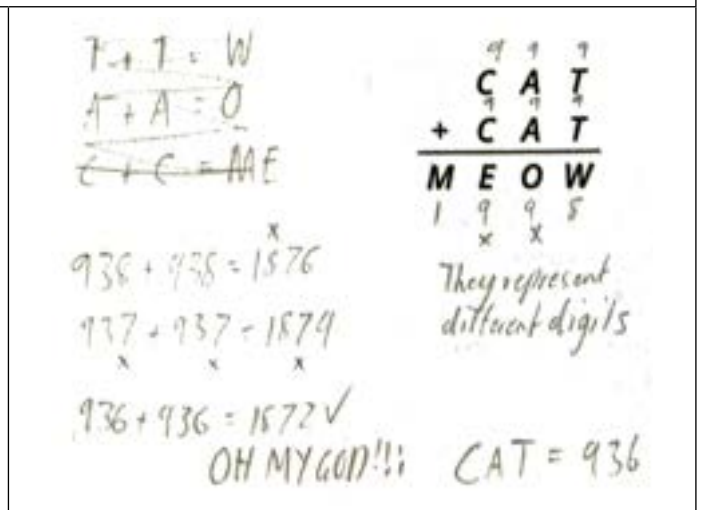 T + T = W
A + A = O
C + C = ME
938 + 938 = 1876
937 + 937 = 1874
936 + 936 = 1872 ✓
OH MY GOD!!¡
9 9 9
C A T
9 9 9
+ C A T
M E O W
1 9 9 8
x x
They represent
different digits
CAT = 936